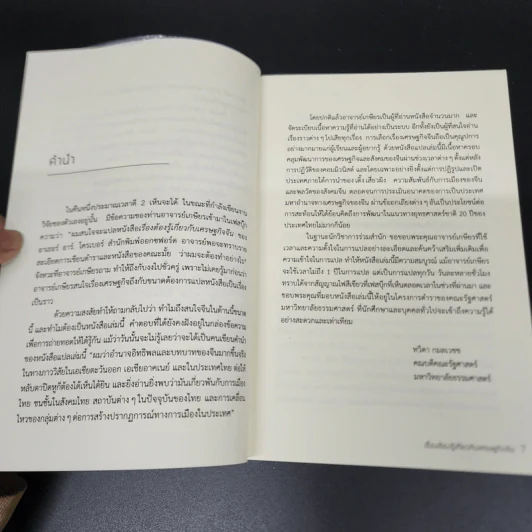 คำนำ
ในคืนหนึ่งประมาณเวลาตี 2 เห็นจะได้ ในขณะที่กำลังเขียนงาน
วิจัยของตัวเองอยู่นั้น มีข้อความของท่านอาจารย์เกษียรเข้ามาในเฟสบุ๊ก
ความว่า "ผมสนใจจะแปลหนังสือเรื่องต้องรู้เกี่ยวกับเศรษฐกิจจีน ของ
อาเธอร์ อาร์ โครเบอร์ สำนักพิมพ์ออกซฟอร์ด อาจารย์พอจะทราบราย
ละเอียดการเขียนตำราและหนังสือของคณะมั้ย ว่าผมจะต้องทำอย่างไร"
จังหวะที่อาจารย์เกษียรถาม ทำให้ถึงกับงงไปชั่วครู่ เพราะไม่เคยรู้มาก่อนว่า
อาจารย์เกษียรสนใจเรื่องเศรษฐกิจจีนถึงกับขนาดต้องการแปลหนังสือให้เป็น
เรื่องเป็นราว
ด้วยความสงสัยทำให้ถามกลับไปว่า ทำไมถึงสนใจจีนในด้านนี้ขนาด
นี้ และทำไมต้องเป็นหนังสือเล่มนี้ คำตอบที่ได้ยังคงฝังอยู่ในกล่องข้อความ
เพื่อการถ่ายทอดให้ได้รู้กัน แม้ว่าวันนั้นจะไม่รู้เลยว่าจะได้เป็นคนเขียนคำนำ
ของหนังสือแปลเล่มนี้ "ผมว่าอำนาจอิทธิพลและบทบาทของจีนมากขึ้นจริง
ในทางภาววิสัยในเอเชียตะวันออก เอเชียอาคเนย์ และในประเทศไทย ต่อให้
หลับตาปิดหูก็ต้องได้เห็นได้ยิน และยิ่งอ่านยิ่งพบว่ามันเกี่ยวพันกับการเมือง
ไทย ชนชั้นในสังคมไทย สถาบันต่าง ๆ ในปัจจุบันของไทย และการเคลื่อน
ไหวของกลุ่มต่าง ๆ ต่อการสร้างปรากฏการณ์ทางการเมืองในประเทศ"
โดยปกติแล้วอาจารย์เกษียรเป็นผู้ที่อ่านหนังสือจำนวนมาก และ
จัดระเบียบเนื้อหาความรู้ที่อ่านได้อย่างเป็นระบบ อีกทั้งยังเป็นผู้ที่สนใจอ่าน
เรื่องราวต่าง ๆ ไปเสียทุกเรื่อง การเลือกเรื่องเศรษฐกิจจีนถือเป็นคุณูปการ
อย่างมากมายแก่ผู้เรียนและผู้อยากรู้ ด้วยหนังสือแปลเล่มนี้มีเนื้อหาครอบ
คลุมพัฒนาการของเศรษฐกิจและสังคมของจีนผ่านช่วงเวลาต่าง ๆ ตั้งแต่หลัง
การปฏิวัติของคอมมิวนิสต์ และโดยเฉพาะอย่างยิ่งตั้งแต่การปฏิรูปและเปิด
ประเทศภายใต้การนำของ เติ้ง เสี่ยวผิง ความสัมพันธ์กับการเมืองของจีน
และพลวัตของสังคมจีน ตลอดจนการประเมินอนาคตของการเป็นประเทศ
มหาอำนาจทางเศรษฐกิจของจีน ผ่านข้อถกเถียงต่าง ๆ อันเป็นประโยชน์ต่อ
การสะท้อนให้ได้ย้อนคิดถึงการพัฒนาในแนวทางยุทธศาสตร์ชาติ 20 ปีของ
ประเทศไทยไม่มากก็น้อย
ในฐานะนักวิชาการร่วมสำนัก ขอขอบพระคุณอาจารย์เกษียรที่ใช้
เวลาและความตั้งใจในการแปลอย่างละเอียดและค้นคว้าเสริมเพิ่มเติมเพื่อ
ความเข้าใจในการแปล ทำให้หนังสือเล่มนี้มีความสมบูรณ์ แม้อาจารย์เกษียร
จะใช้เวลาไม่ถึง 1 ปีในการแปล แต่เป็นการแปลทุกวัน วันละหลายชั่วโมง
ทราบได้จากสัญญาณไฟสีเขียวที่เฟสบุ๊กที่เห็นตลอดเวลาในช่วงที่ผ่านมา และ
ขอบพระคุณที่มอบหนังสือเล่มนี้ให้อยู่ในโครงการตำราของคณะรัฐศาสตร์
มหาวิทยาลัยธรรมศาสตร์ ที่นักศึกษาและบุคคลทั่วไปจะเข้าถึงความรู้ได้
อย่างสะดวกและเท่าเทียม
ทวิดา กมลเวชช
คณบดีคณะรัฐศาสตร์
มหาวิทยาลัยธรรมศาสตร์
7